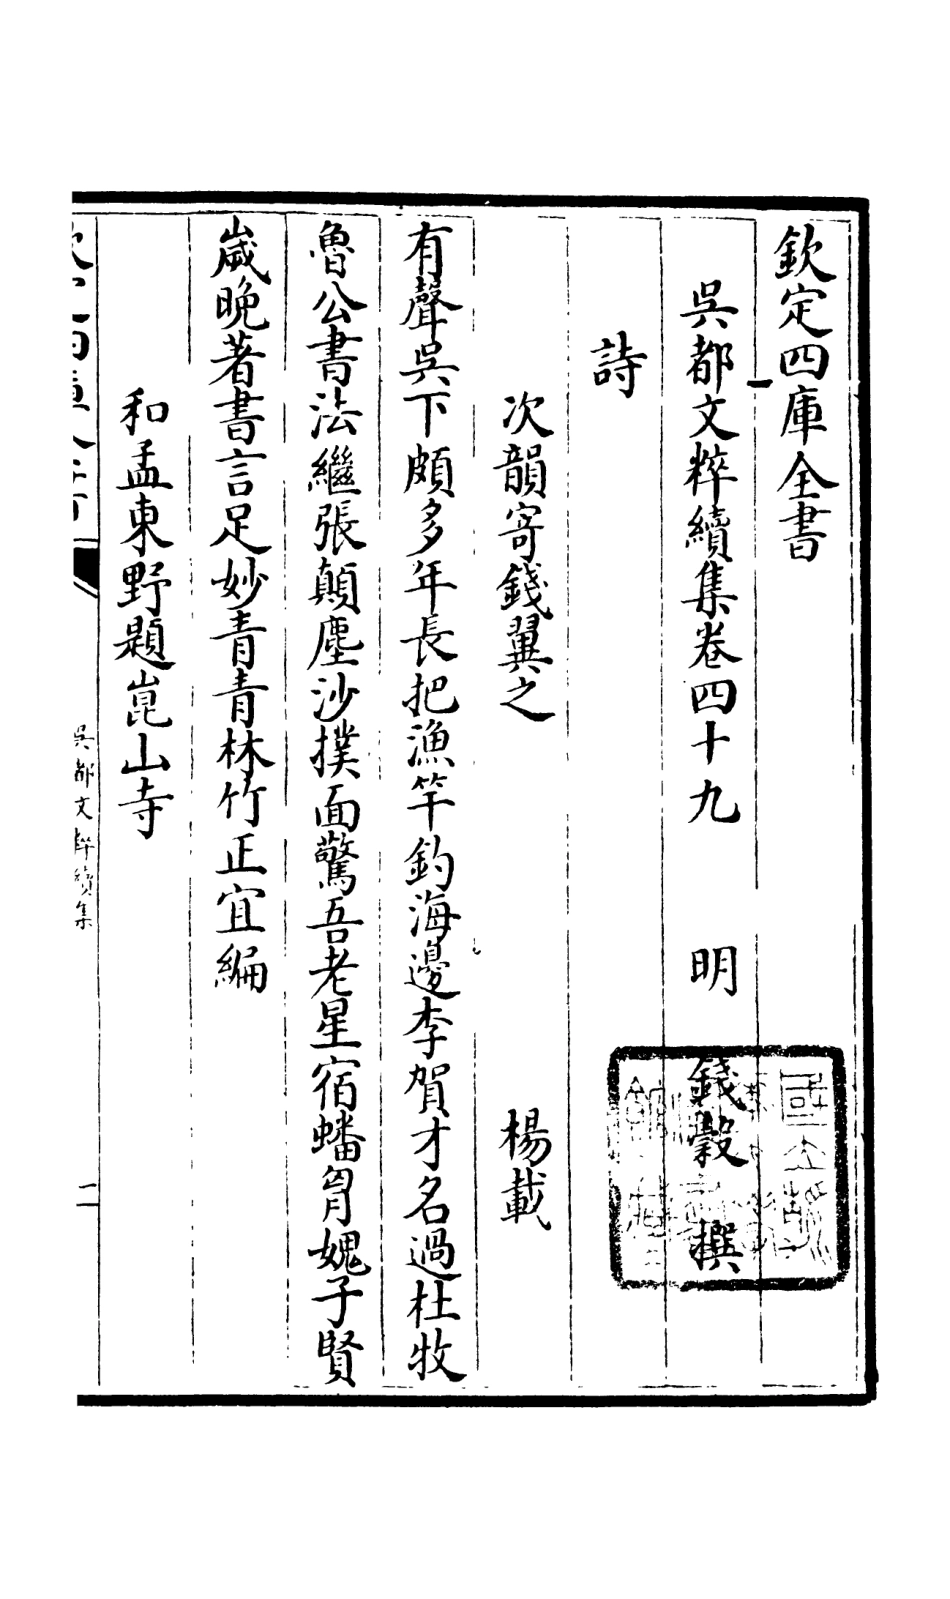 欽定四庫全書
吳都文粹續集卷四十九 明 錢穀 撰
詩
次韻寄錢翼之 楊載
有聲吳下頗多年長把漁竿釣海邊李賀才名過杜牧
魯公書法繼張顛塵沙撲面驚吾老星宿蟠胷媿子賢
歲晚著書言足妙青青林竹正宜編
和孟東野題崑山寺
吳都文粹續集